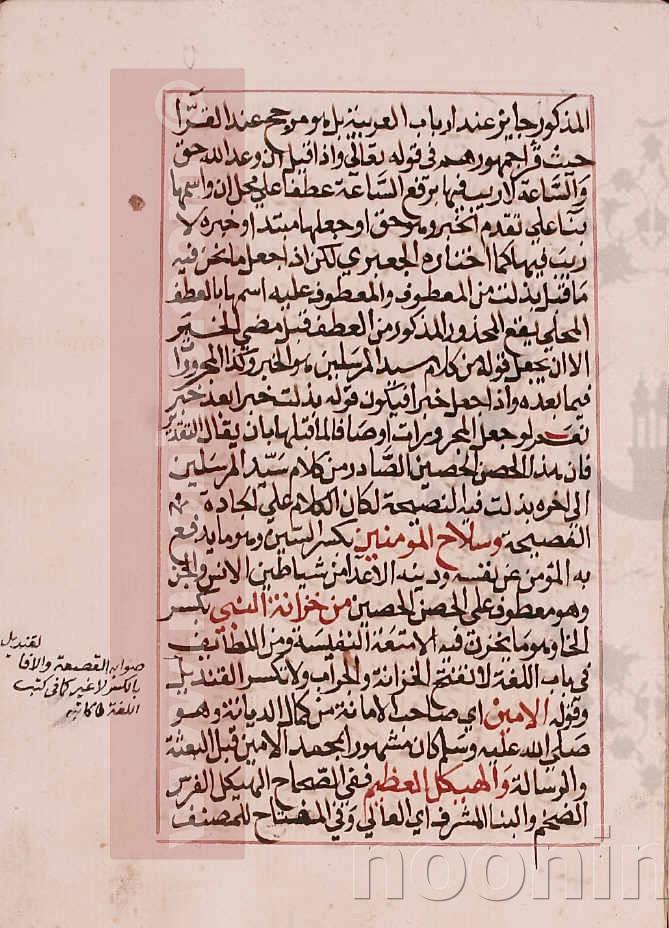 المذكور جايز عند ارباب العربية بل هو مرجح عند القرّا
حيث قرا جمهورهم في قوله تعالى واذا قيل ان وعد الله حق
والساعة لا ريب فيها برفع الساعة عطفا على محل ان واسمها
بنا على تقدم الخبر وهو حق او جعلها مبتدا وخبره لا
ريب فيها كما اختاره الجعبري لكن اذا جعل ما نحن فيه
ما قبل بذلت من المعطوف والمعطوف عليه اسمها بالعطف
المحلي يقع المحذور المذكور من العطف قبل مضي الخبر
الا ان يجعل قوله من كلام سيد المرسلين هو الخبر وكذا المجرورا
فيما بعده واذا جعل خبرا فيكون قوله بذلت خبرا بعد خبر
نعم لو جعل المجرورات اوصافا لما قبلها بان يقال التقدير
فان هذا الحصن الحصين الصادر من كلام سيّد المرسلين
الى اخره بذلت فيه النصيحة لكان الكلام على الجادة
الفصيحة وسلاح المومنين بكسر السين وهو ما يدفع
به المؤمن عن نفسه ودينه الاعدا من شياطين الانس والجن
وهو معطوف على الحصن الحصين من خزانة النبي بكسر
الخا وهو ما يخزن فيه الامتعة النفيسة ومن اللطايف
في باب اللغة لا تفتح الخزانة والجراب ولا تكسر القنديل
وقوله الامين اي صاحب الامانة من كمال الديانة وهو
صلى الله عليه وسلم كان مشهورا بمحمد الامين قبل البعثة
والرسالة والهيكل العظيم ففي الصحاح الهيكل الفرس
الضخم والبنا المشرف اي العالي وفي المفتاح للمصنف
لقنديل
صوابه القصعة والافا
بالكسر لا غير كما في كتب
اللغة
noonin